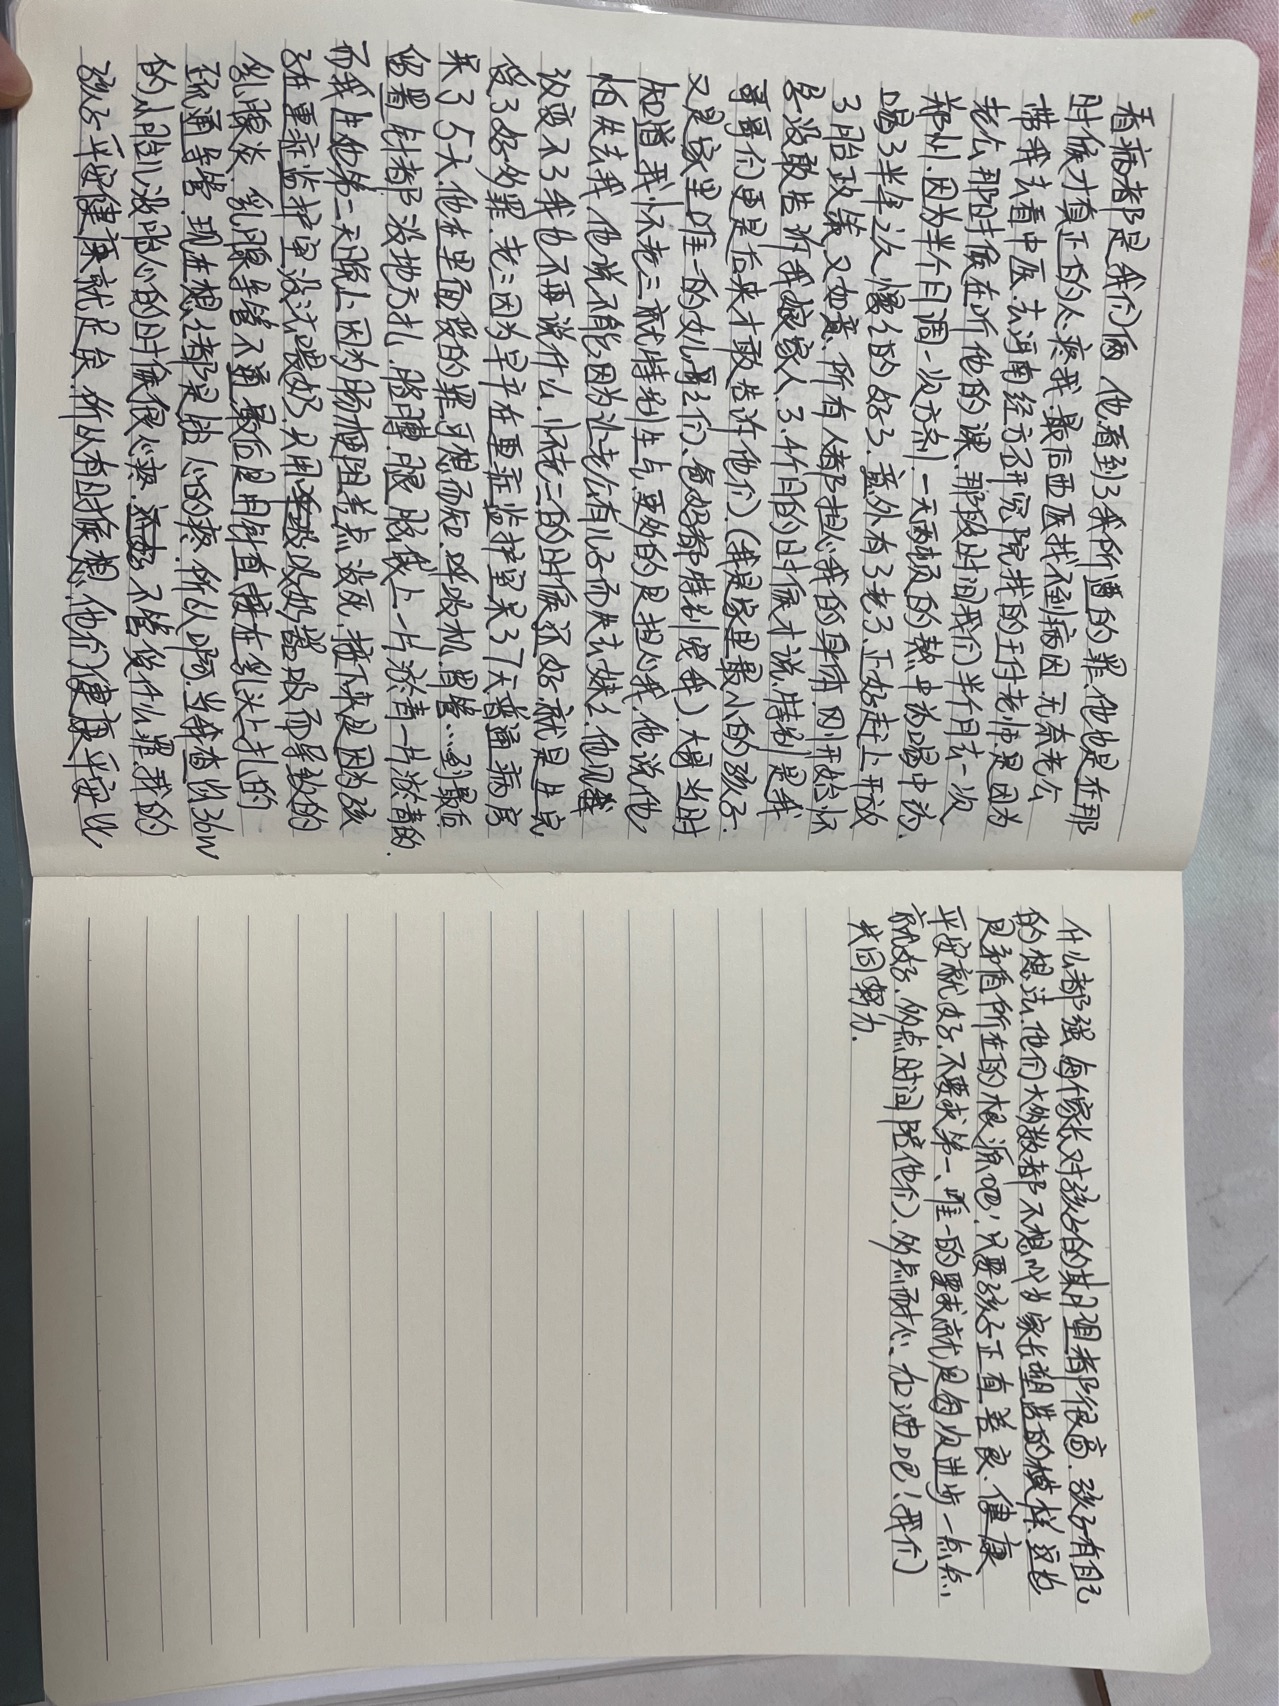 看病都是我们俩.他看到了我所遭的罪.他也是在那
时候才真正的心疼我.最后西医找不到病因.无奈老公
带我去看中医.去河南经方研究院找的王付老师.是因为
老公那时候在听他的课.那段时间我们半个月去一次
郑州.因为半个月调一次方剂.一天两顿的熬中药喝中药.
喝了半年之久.慢慢的好了.意外有了老三.正好赶上开放
3胎政策.又如意.所有人都担心我的身体.刚开始怀
孕.没敢告诉我娘家人.3.4个月的时候才说.特别是我
哥哥们更是后来才敢告诉他们.(我是家里最小的孩子.
又是家里唯一的女儿.哥哥们、爸妈都特别宠我).大哥当时
知道我怀老三就特别生气.更多的是担心我.他说他
怕失去我.他说不能因为让老公有儿子而失去妹妹.他见
改变不了我也不再说什么.怀老三的时候还好.就是生完
受了好多罪.老三因为早产在重症监护室呆了7天普通病房
呆了5天.他在里面受的罪可想而知.呼吸机.胃管…到最后
留置针都没地方扎.胳膊.腿.脑袋上一片淤青一片淤青的.
而我生他第二天晚上因为肠梗阻差点没死.接下来是因为孩
子在重症监护室没法喂奶.只用吸奶器吸而导致的
乳腺炎.乳腺导管不通最后是用针直接在乳头上扎的
疏通导管.现在想想都是钻心的疼.所以啊.当我查出36W
的小胎儿没胎心的时候很心疼.不管受什么罪.我的
孩子平安健康就足矣.所以有时候想.他们健康平安比
什么都强.每个家长对孩子的期望都很高.孩子有自己
的想法.他们大多数都不想成为家长塑造的模样.这也
是矛盾所在的根源吧!只要孩子正直善良.健康
平安就好.不要求第一、唯一的要求就是每次进步一点点
就好.多点时间陪他们.多点耐心.加油吧!我们
共同努力.